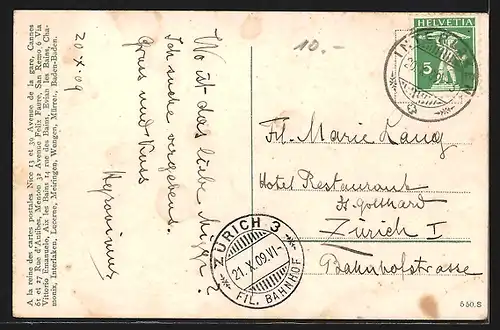 A la reine des cartes postales Nice 13 et 30 Avenue de la gare, Cannes
61 et 27 Rue d'Antibes, Mentone 32 Avenue Felix Faure, San Remo 6 Via
Vittorio Emanuele, Aix les Bains 14 rue des Bains, Evian les Bains, Cha-
monix, Interlaken, Lucerne, Meiringen, Wengen, Mürren, Baden-Baden.
20 X. 09
Wo ist das liebe
Ich suche vergebens.
Gruss und Kuss
Hyronimus
10.-
HELVETIA
5
Frl. Marie Lang
Hotel Restaurant
St. Gotthard
Zürich I
Bahnhofstrasse
ZÜRICH 3
21.X.09.VI-
FIL. BAHNHOF
550.S